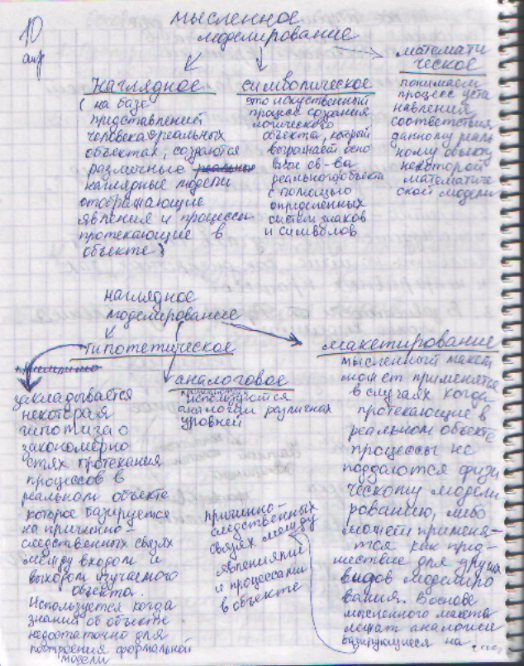 10
апр
мысленное
моделирование
математи
ческое
наглядное
(на базе
представлений
человека о реальных
объектах, создаются
различные
наглядные модели
отображающие
явления и процессы
протекающие в
объекте)
символическое
это искуственный
процесс создания
логического
объекта, который
выражает осно
вные св-ва
реального объекта
с помощью
определенных
систем знаков
и символов
понимаем
процесс уста
навления
соответствия
данному реаль
ному объекту
некоторой
математиче
ской модели
наглядное
моделирование
гипотетическое
закладывается
некоторая
гипотиза о
закономерно
стях протекания
процессов в
реальном объекте
которое базируется
на причинно-
следственных связях
между входом и
выходом изучаемого
объекта.
Используется когда
знаний об объекте
недостаточно для
построения формальной
модели
аналоговое
используются
аналогии различных
уровней
макетирование
мысленный макет
может применятся
в случаях когда
протекающие в
реальном объекте
процессы не
поддаются физи
ческому модели
рованию, либо
может применя-
тся как пред-
шествие для других
видов моделиро
вания. В основе
мысленного макета
лежат аналогии
базирующиеся на ...
причинно-
следственных
связях между
явлениями
и процессами
в объекте